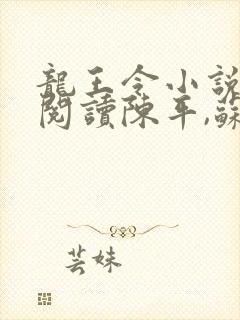 龍王令小說
閱讀陳平,蘇
芸妹